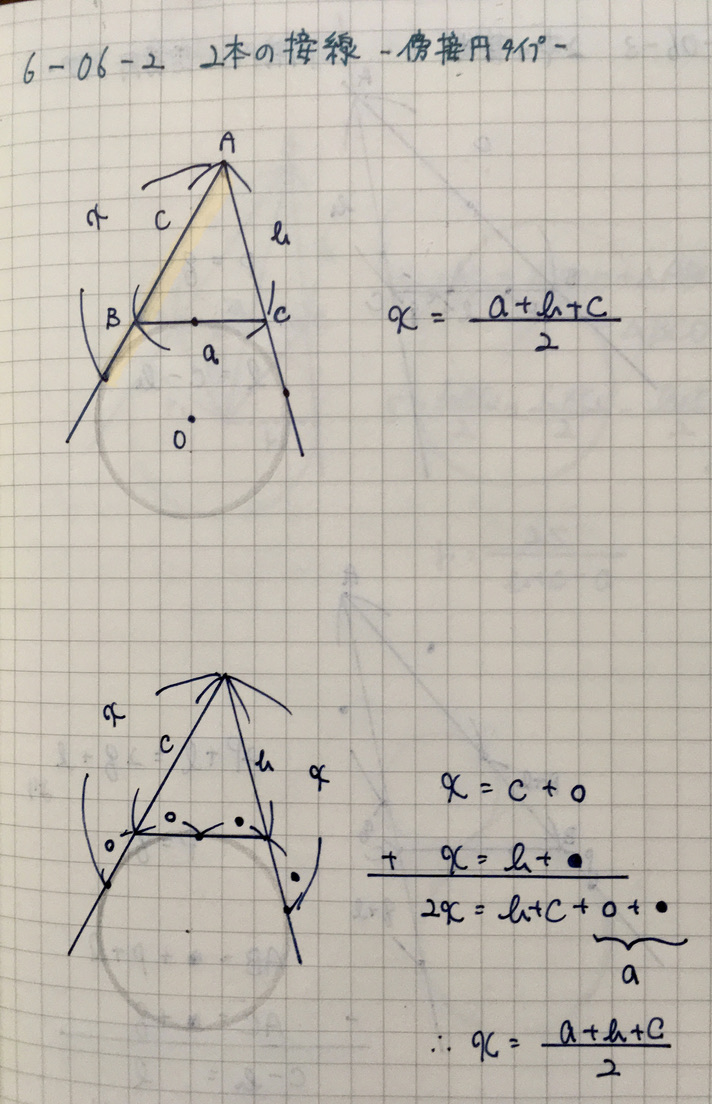 6-06-2 2本の接線 -傍接円タイプ-
A
x c b
B C
a
O
x = a+b+c
2
x c b x
○ ○ ● ●
x = c + ○
+ x = b + ●
2x = b+c+○+●
a
∴ x = a+b+c
2